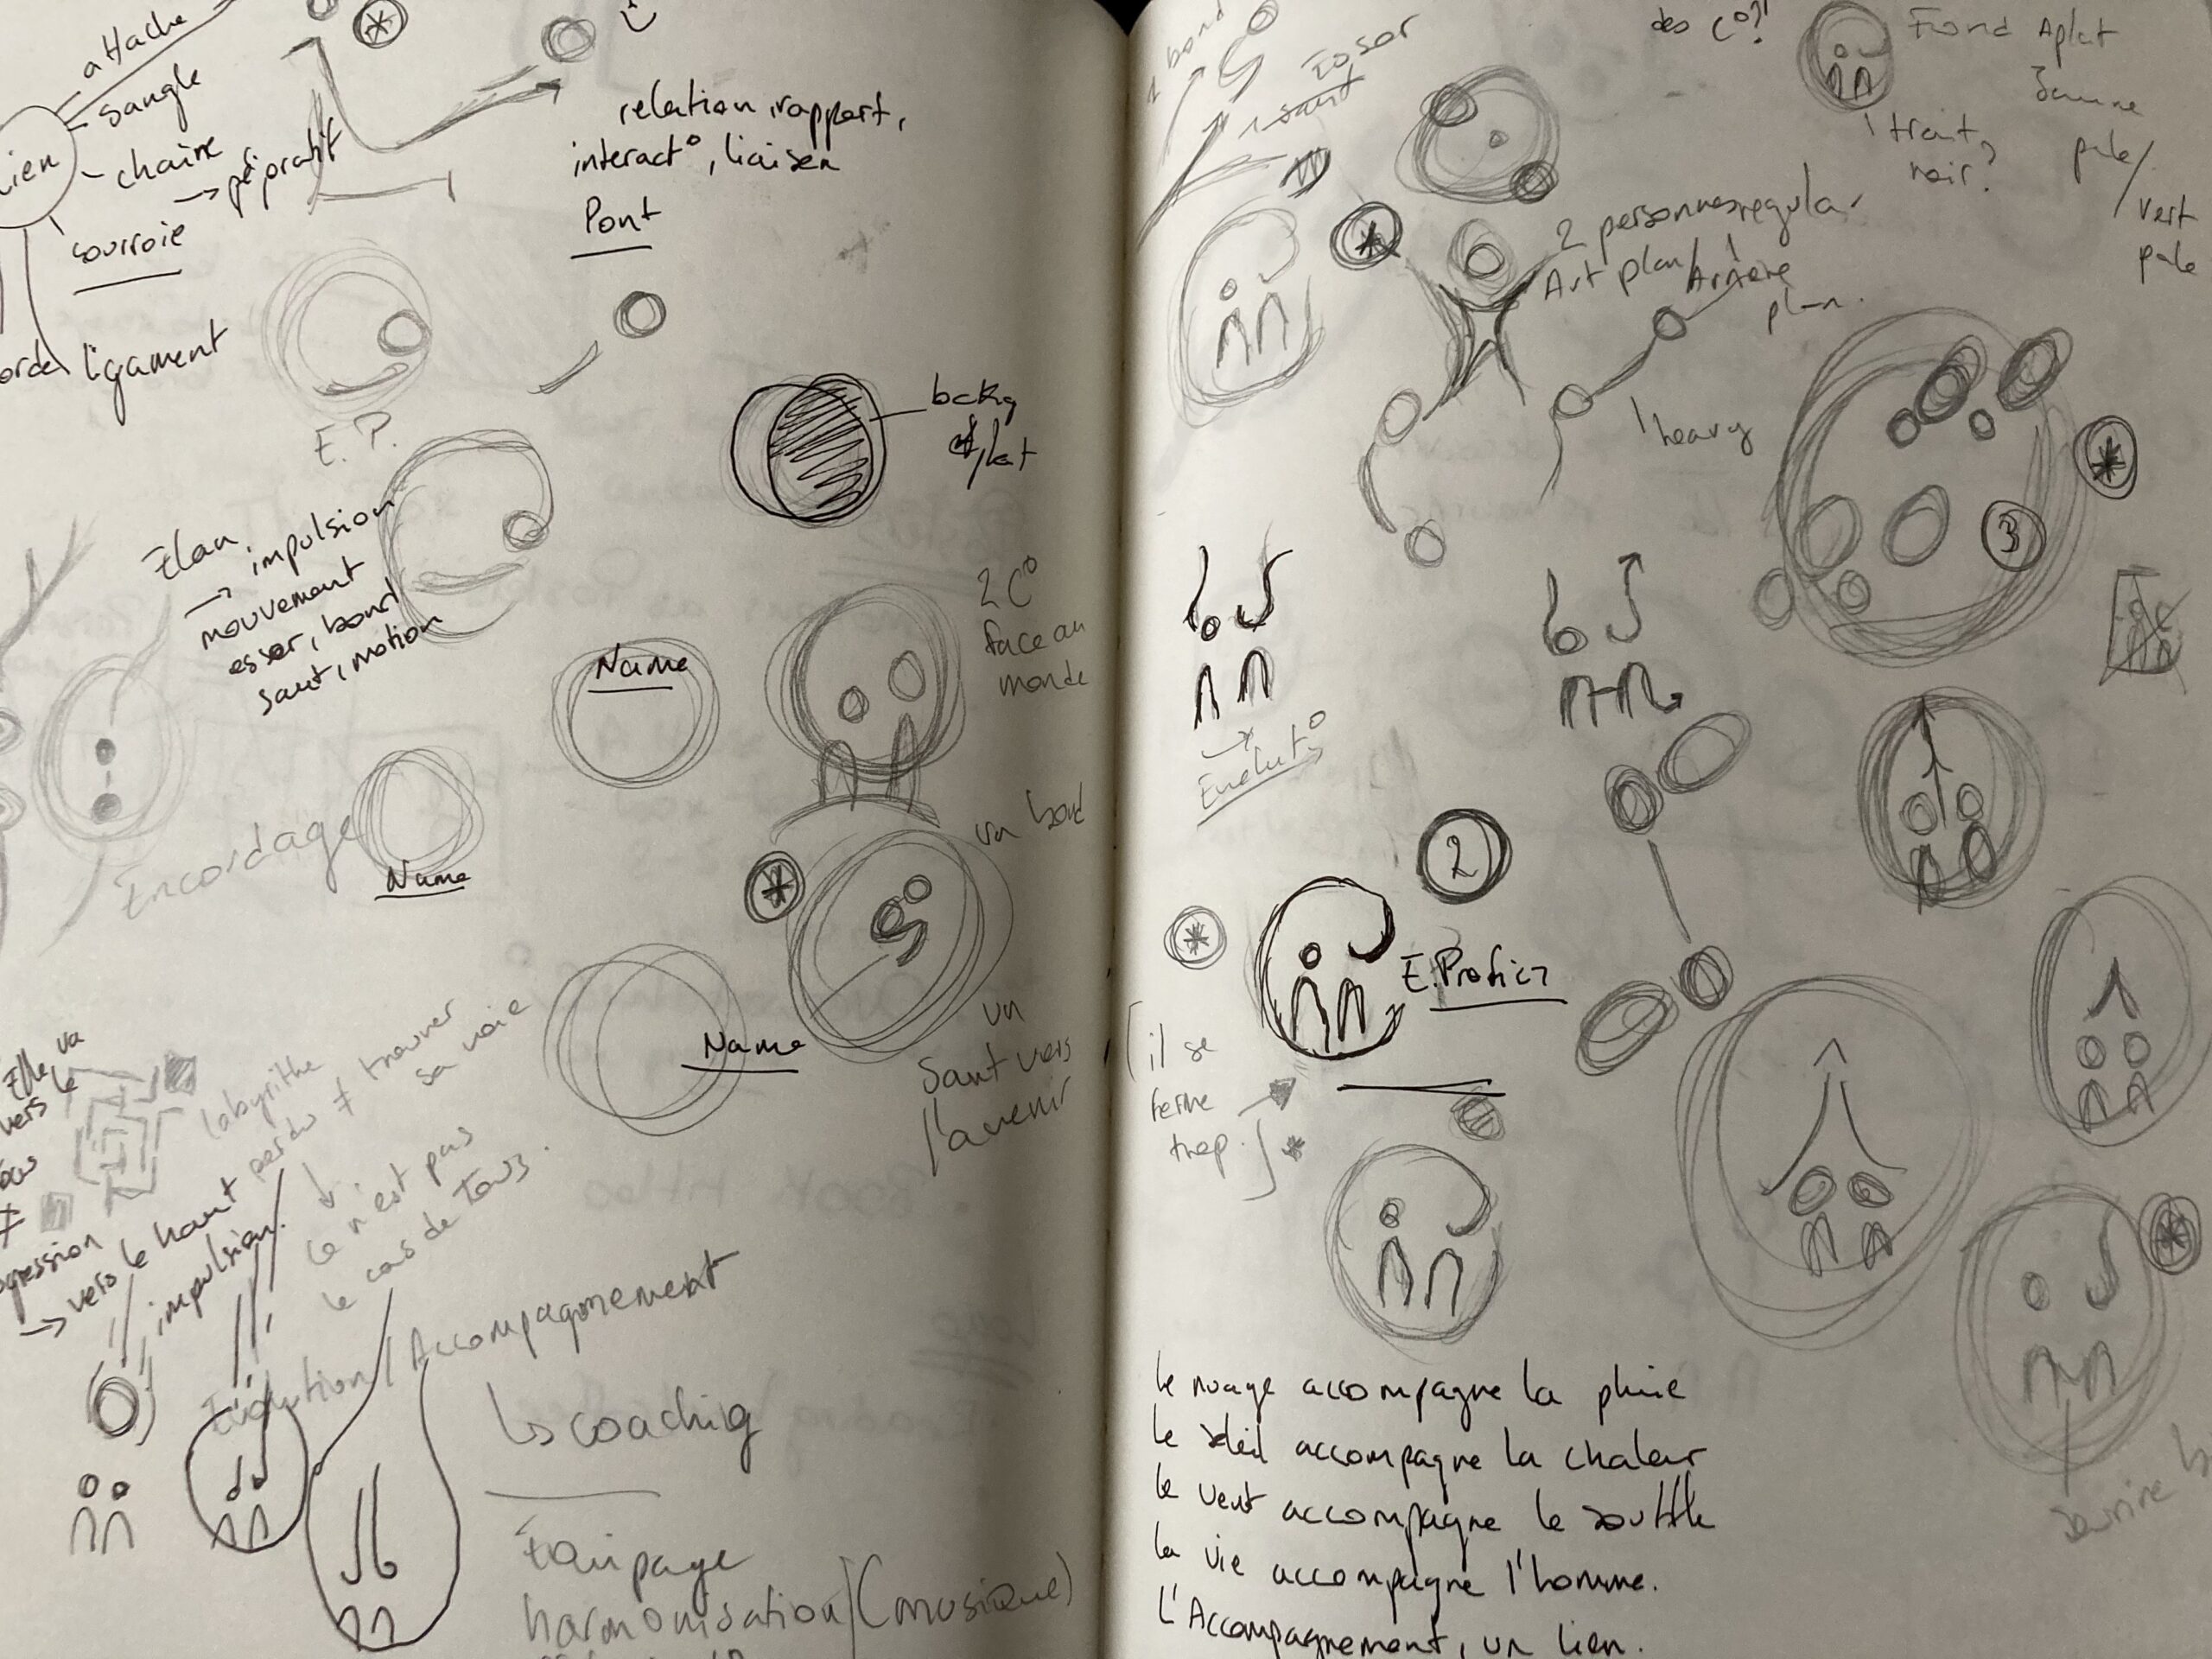 attache
sangle
chaîne
→ péjoratif
courroie
ligament
relation, rapport,
interact°, liaison
Pont
E. P.
backg
aplat
Élan,
→ impulsion
mouvement
essor, bond
saut, motion
Name
2 C°
face au
monde
Encordage
Name
un bond
Name
un
saut vers
l'avenir
Elle va
vers le
labyrithe
perdu ≠ trouver
sa voie
↓
ce n'est pas
le cas de tous.
→ vers le haut
impulsion
Évolution / Accompagnement
↳ coaching
Équipage
harmonisation / (musique)
1 bond
Essor
1 saut
des C°?!
Fond Aplat
Jaune
pale/
vert
pale
1 trait
noir?
2 personnes
Avt plan / Arrière
plan.
1 heavy
3
→
Évolut°
2
E. Profici
[il se
ferme
trop.] *
Le nuage accompagne la pluie
Le soleil accompagne la chaleur
Le vent accompagne le souffle
La vie accompagne l'homme.
L'Accompagnement, un lien.